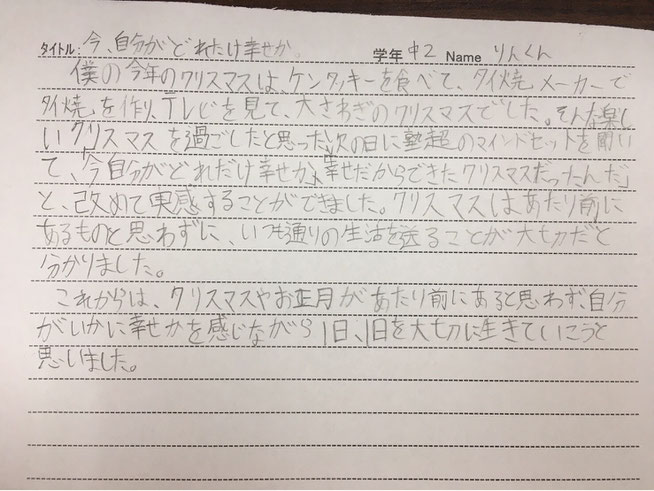 タイトル：今、自分がどれだけ幸せか。 学年 中2 Name りんくん
僕の今年のクリスマスは、ケンタッキーを食べて、タイ焼メーカーで
タイ焼を作り、テレビを見て、大さわぎのクリスマスでした。そんな楽し
いクリスマスを過ごしたと思った次の日に塾超のマインドセットを聞い
て、「今自分がどれだけ幸せか、幸せだからできたクリスマスだったんだ」
と、改めて実感することができました。クリスマスはあたり前に
あるものと思わずに、いつも通りの生活を送ることが大切だと
分かりました。
これからは、クリスマスやお正月があたり前にあると思わず、自分
がいかに幸せかを感じながら1日、1日を大切に生きていこうと
思いました。